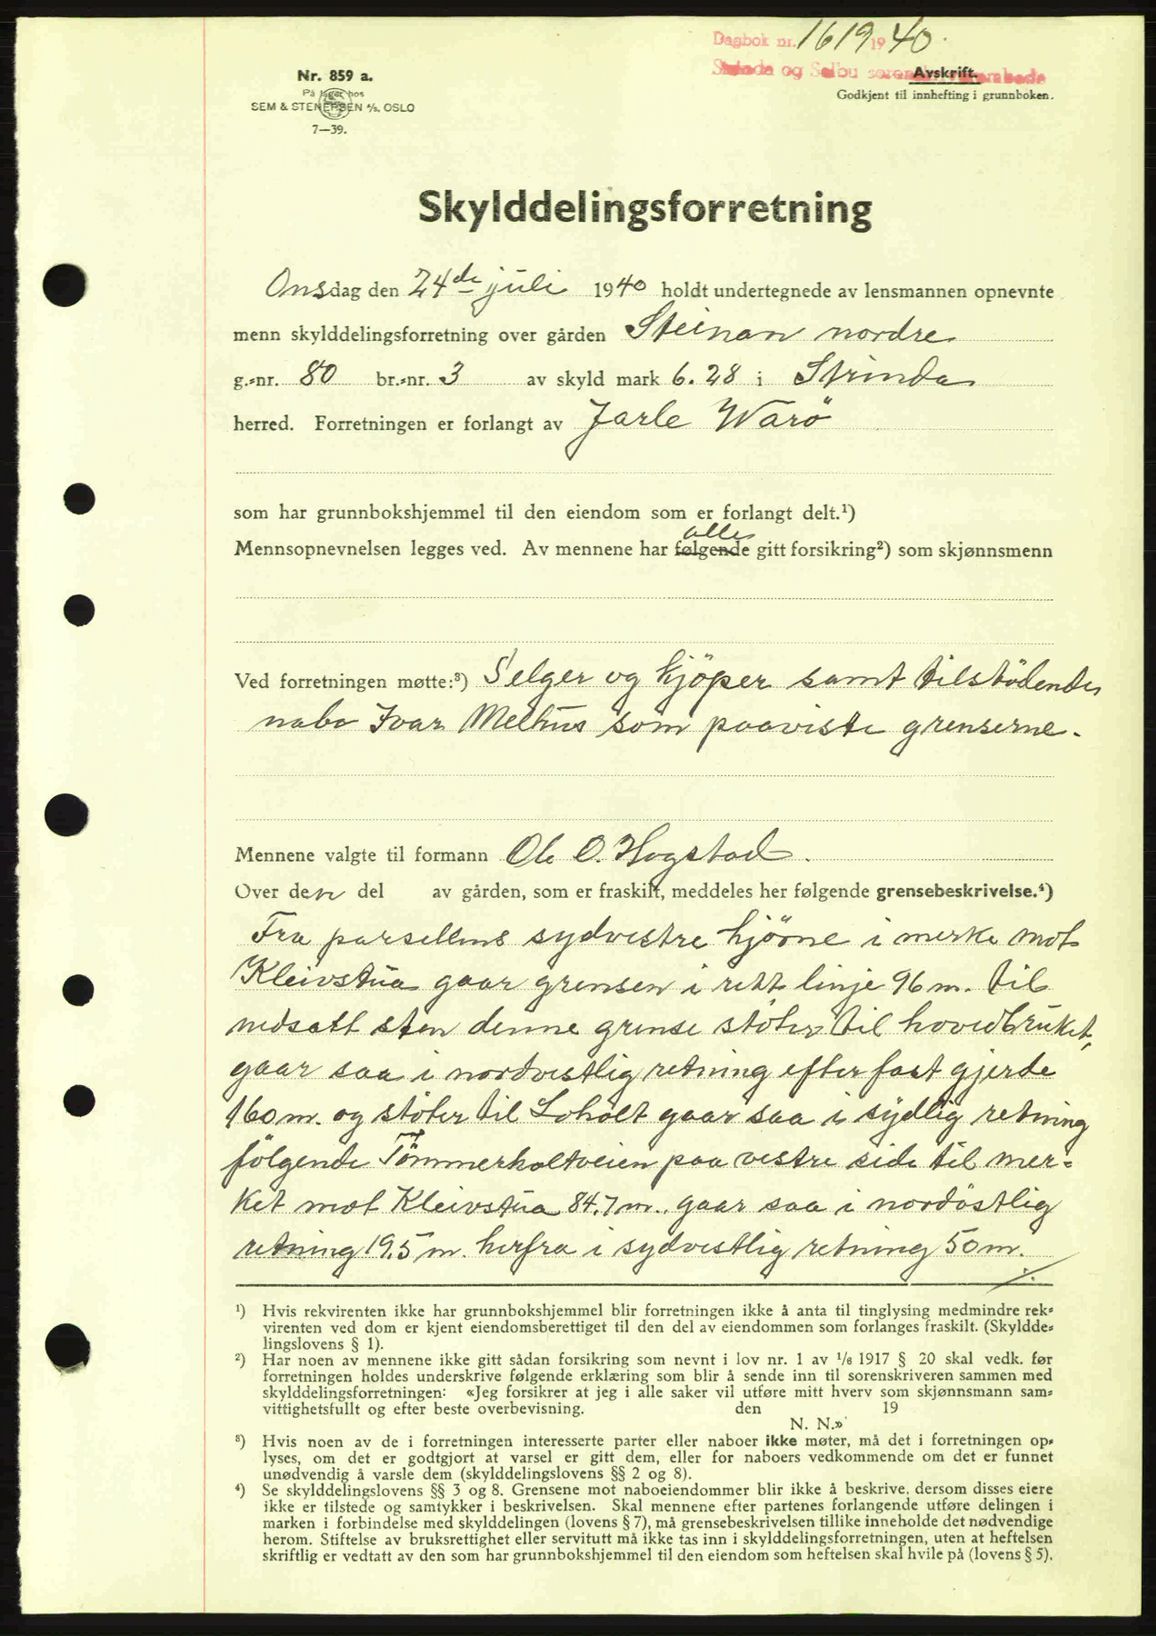 Dagbok nr. 1619 19 40.
Strinda og Selbu sorenskriverembede
Nr. 859 a.
På lager hos
SEM & STENERSEN A/S. OSLO
7—39.
Avskrift.
Godkjent til innhefting i grunnboken.
Skylddelingsforretning
Onsdag den 24de juli 1940 holdt undertegnede av lensmannen opnevnte
menn skylddelingsforretning over gården Steinan nordre
g.-nr. 80 br.-nr. 3 av skyld mark 6.28 i Strinda
herred. Forretningen er forlangt av Jarle Warö
som har grunnbokshjemmel til den eiendom som er forlangt delt.¹)
alle
Mennsopnevnelsen legges ved. Av mennene har følgende gitt forsikring²) som skjønnsmenn
Ved forretningen møtte:³) Selger og kjöper samt tilstödende
nabo Ivar Melhus som paaviste grenserne.
Mennene valgte til formann Ole O. Hogstad.
Over den del av gården, som er fraskilt, meddeles her følgende grensebeskrivelse.⁴)
Fra parsellens sydvestre hjörne i merke mot
Kleivstua gaar grensen i rett linje 96 m. til
nedsatt sten denne grense stöter til hovedbruket,
gaar saa i nordvestlig retning efter fast gjerde
160 m. og stöter til Loholt gaar saa i sydlig retning
fölgende Tömmerholtveien paa vestre side til mer-
ket mot Kleivstua 84.7 m. gaar saa i nordöstlig
retning 19.5 m. herfra i sydvestlig retning 50 m.
¹) Hvis rekvirenten ikke har grunnbokshjemmel blir forretningen ikke å anta til tinglysing medmindre rek-
virenten ved dom er kjent eiendomsberettiget til den del av eiendommen som forlanges fraskilt. (Skyldde-
lingslovens § 1).
²) Har noen av mennene ikke gitt sådan forsikring som nevnt i lov nr. 1 av 1/6 1917 § 20 skal vedk. før
forretningen holdes underskrive følgende erklæring som blir å sende inn til sorenskriveren sammen med
skylddelingsforretningen: «Jeg forsikrer at jeg i alle saker vil utføre mitt hverv som skjønnsmann sam-
vittighetsfullt og efter beste overbevisning. den 19
N. N.»
³) Hvis noen av de i forretningen interesserte parter eller naboer ikke møter, må det i forretningen op-
lyses, om det er godtgjort at varsel er gitt dem, eller for naboers vedkommende om det er funnet
unødvendig å varsle dem (skylddelingslovens §§ 2 og 8).
⁴) Se skylddelingslovens §§ 3 og 8. Grensene mot naboeiendommer blir ikke å beskrive, dersom disses eiere
ikke er tilstede og samtykker i beskrivelsen. Skal mennene efter partenes forlangende utføre delingen i
marken i forbindelse med skylddelingen (lovens § 7), må grensebeskrivelsen tillike inneholde det nødvendige
herom. Stiftelse av bruksrettighet eller servitutt må ikke tas inn i skylddelingsforretningen, uten at heftelsen
skriftlig er vedtatt av den som har grunnbokshjemmel til den eiendom som heftelsen skal hvile på (lovens § 5).